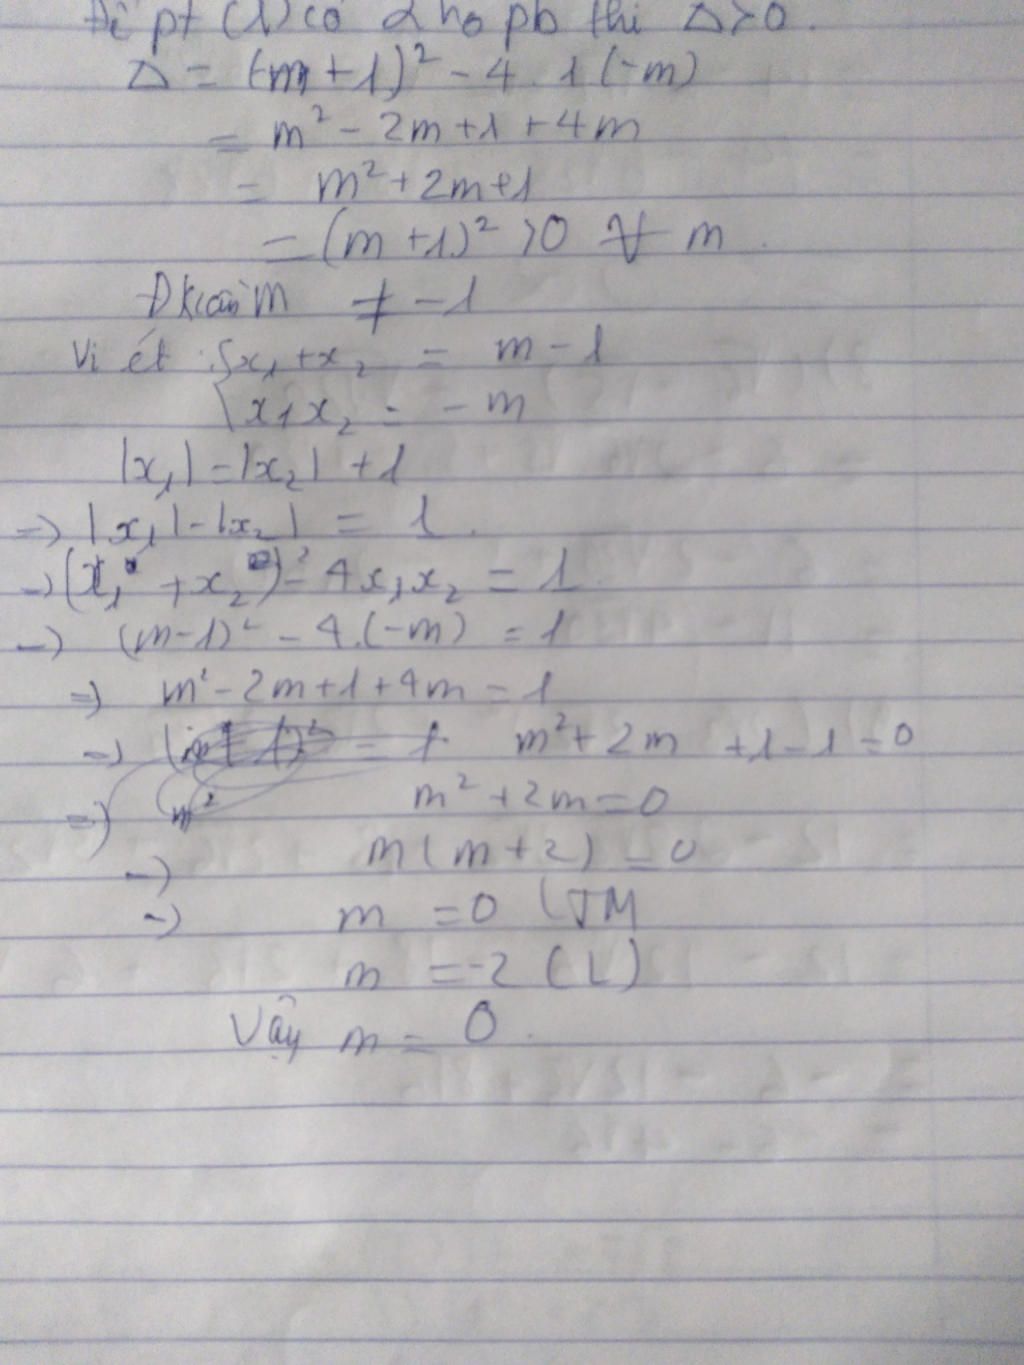 Để pt (1) có 2 n0 pb thì Δ>0.
Δ = (-m+1)² - 4.1(-m)
= m² - 2m+1 +4m
= m²+2m+1
= (m+1)² >0 ∀ m.
m ≠ -1
Vi ét : { x₁+x₂ = m-1
x1x₂ = -m
|x₁| = |x₂| +1
=> |x₁| - |x₂| = 1.
=> (x₁ + x₂)² - 4x₁x₂ = 1
=> (m-1)² - 4.(-m) = 1
=> m² - 2m+1+4m = 1
=> = 1 m²+2m +1-1=0
=> m² m²+2m=0
=> m(m+2) = 0
=> m =0 (TM
m =-2 (L)
Vậy m = 0.